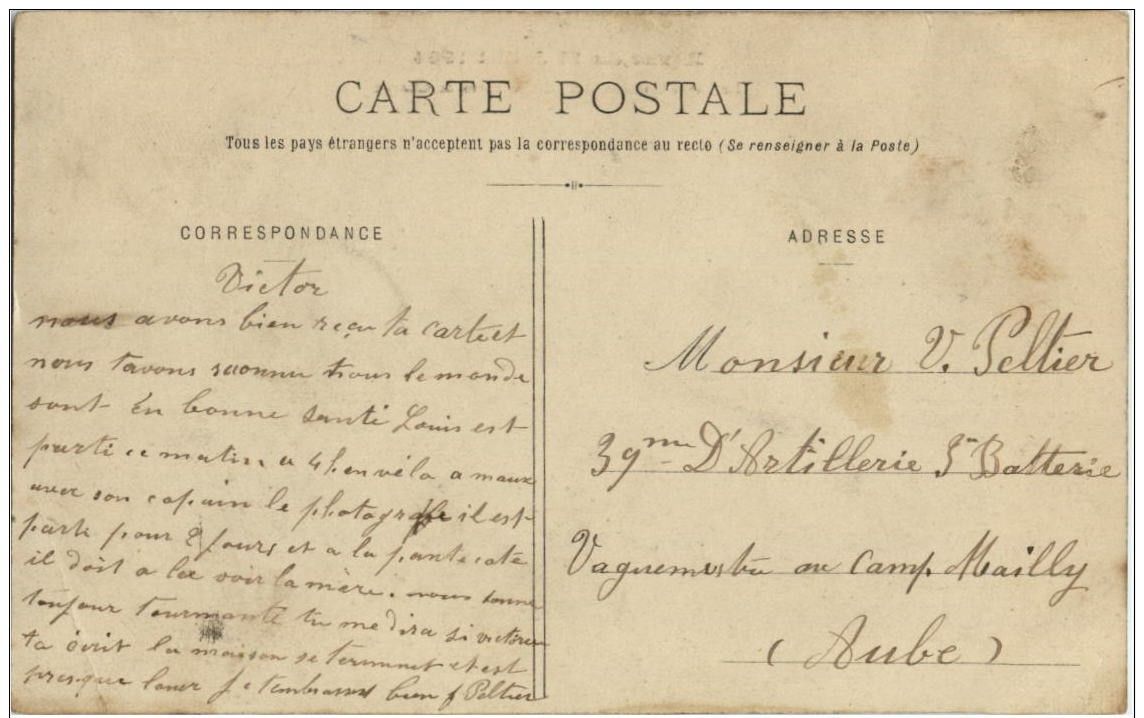 CARTE POSTALE
Tous les pays étrangers n'acceptent pas la correspondance au recto (Se renseigner à la Poste)
CORRESPONDANCE
Victor
nous avons bien reçu ta carte et
nous tavons reconnu tous le monde
sont En bonne santé Louis est
parti ce matin a 4h en vélo a maux
avec son copain le photografe il est
parti pour 2 jours et a la pantecate
il doit a lee voir la mère. nous somme
toujour tourmante tu me dira si victoren
ta écrit la maison se terminet et est
presque louer je tembrasses bien J Peltier
ADRESSE
Monsieur V. Peltier
39me D'Artillerie 3me Batterie
Vaguemestre au Camp Mailly
(Aube)